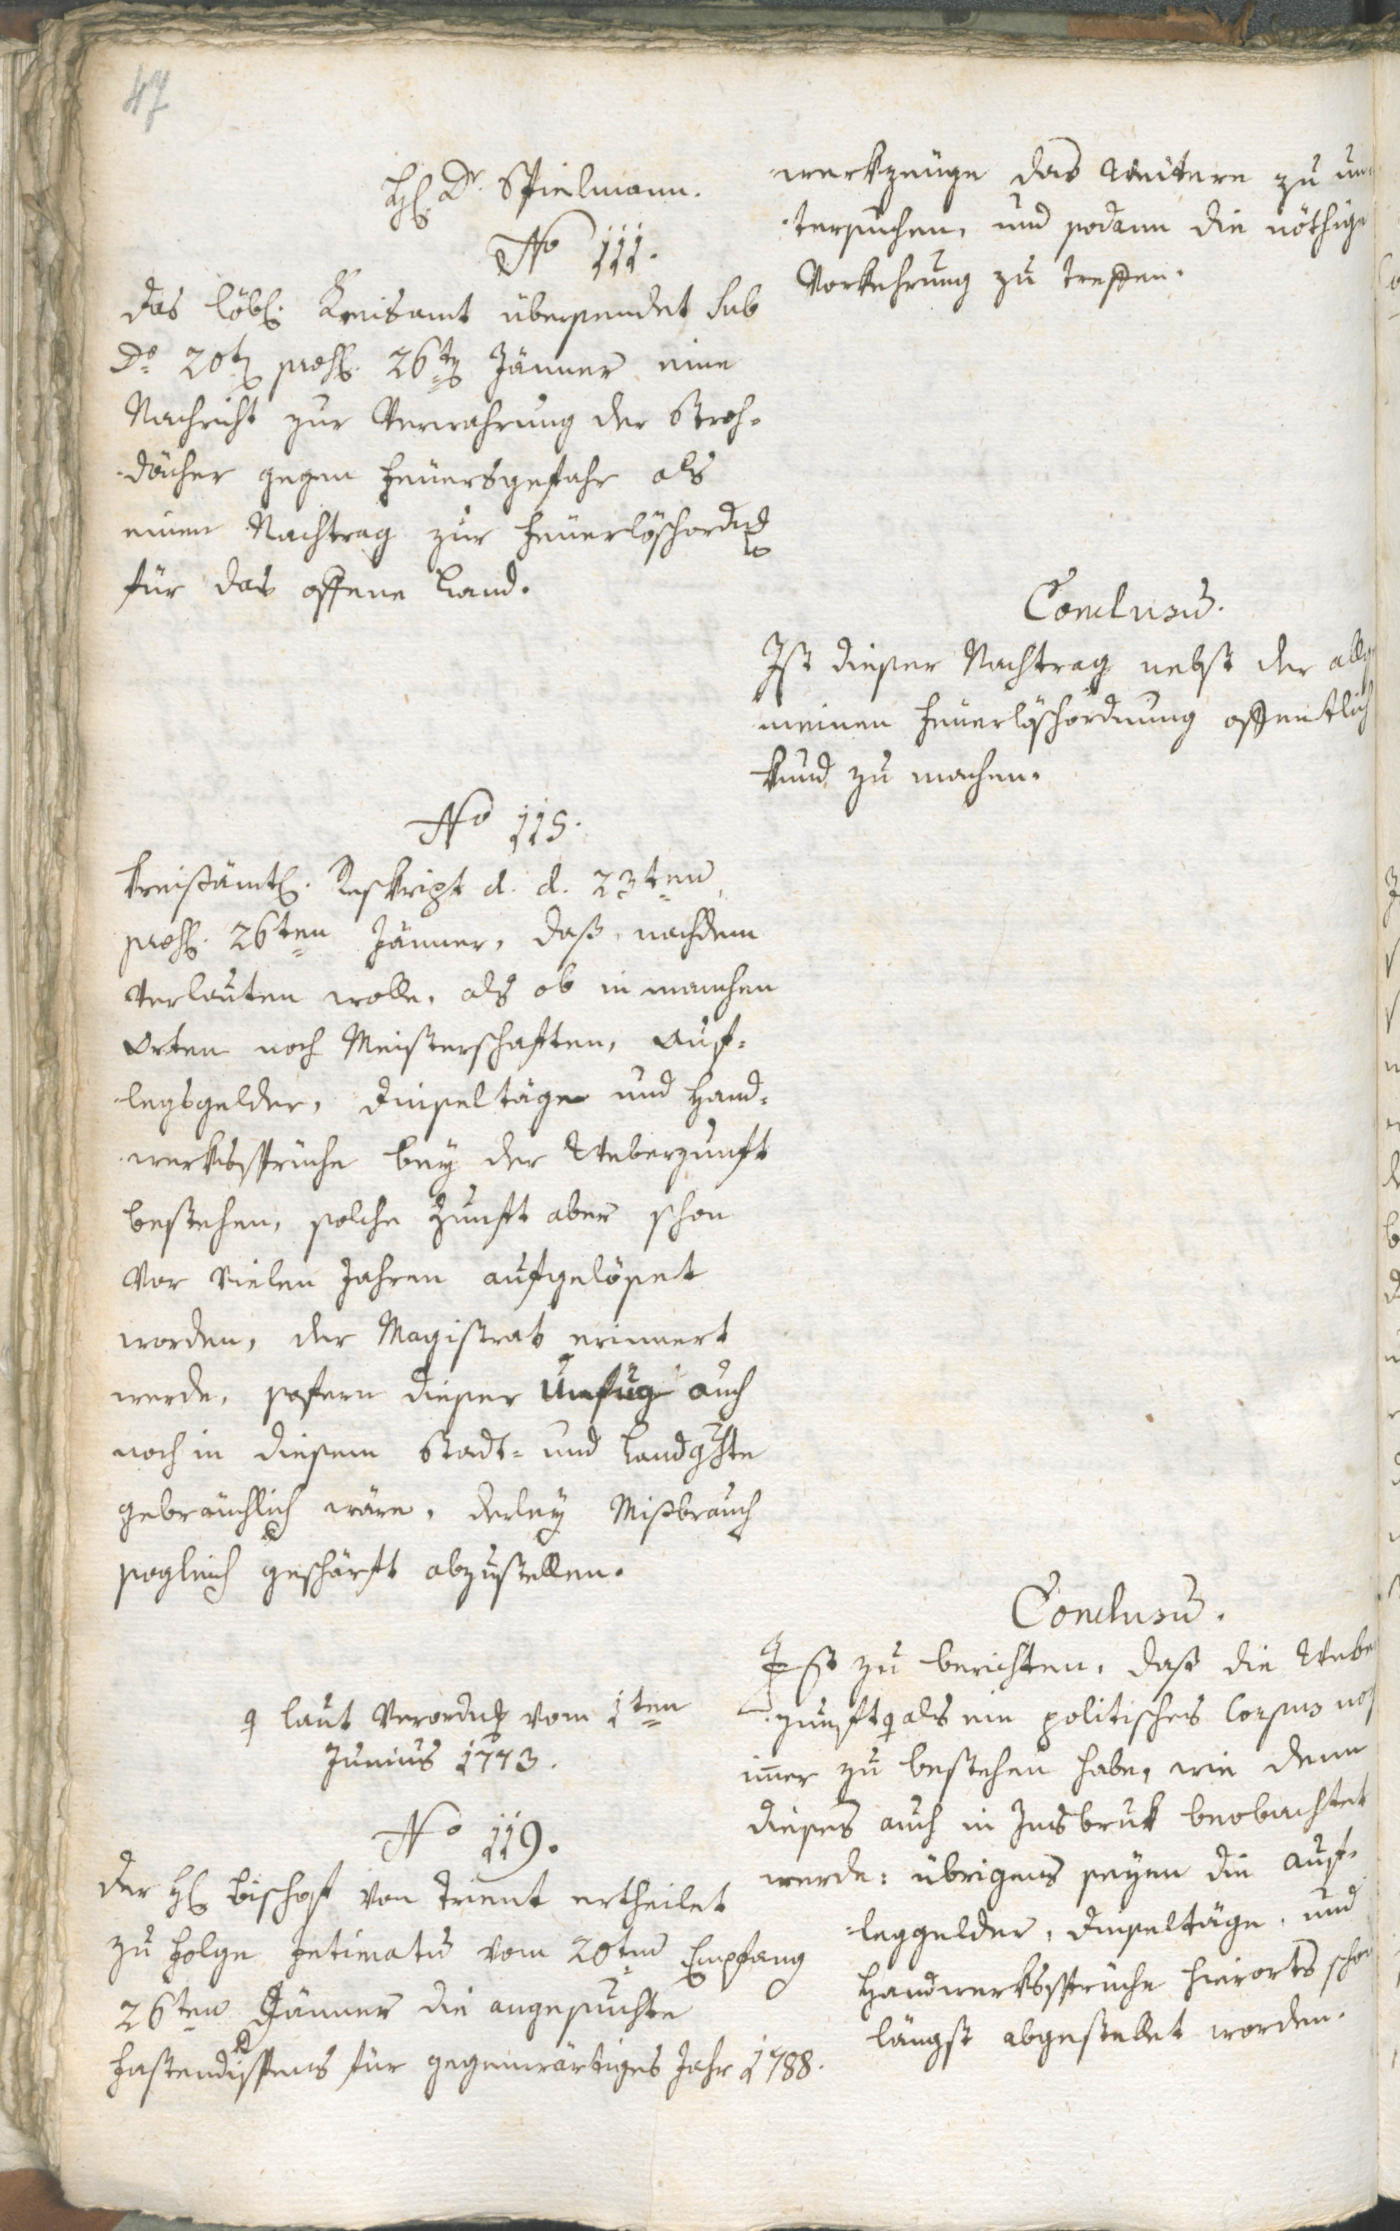 47
H. Dr. Spielmann.
No 111.
Das löbl. Kreisamt übersendet sub
Do 20t praes. 26t Jänner eine
Nachricht zur Verwahrung der Stroh-
dächer gegen Feuersgefahr als
einen Nachtrag zur Feuerlöschordng
für das offene Land.
No 115.
Kreisämtl. Reskript d. d. 23ten,
praes. 26ten Jänner, daß, nachdem
verlauten wolle, als ob in manchen
Orten noch Meisterschaften, Auf-
legsgelder, Dinseltäge und Hand-
werkssprüche bey der Weberzunft
bestehen, solche Zunft aber schon
vor vielen Jahren aufgelöset
worden, der Magistrat erinnert
werde, sofern dieser Unfug auch
noch in diesem Stadt- und Landgchte
gebräuchlich wäre, derley Mißbrauch
sogleich geschärft abzustellen.
laut Verordng vom 1ten
Junius 1773.
No 119.
Der H Bischof von Trient ertheilet
zu Folge Intimatū vom 20ten Empfang
26ten Jänner die angesuchte
Fastendispens für gegenwärtiges Jahr 1788.
werkzeuge das Weitere zu un
tersuchen, und sodann die nöthige
Vorkehrung zu treffen.
Conclusū.
Ist dieser Nachtrag nebst der allge
meinen Feuerlöschordnung offentlich
kund zu machen.
Conclusū.
Ist zu berichten, daß die Weber
zunft als ein politisches Corpus noch
imer zu bestehen habe, wie denn
dieses auch in Insbruk beobachtet
werde: übrigens seyen die Auf-
leggelder, Dinseltäge, und
Handwerkssprüche hierorts schon
längst abgestellet worden.